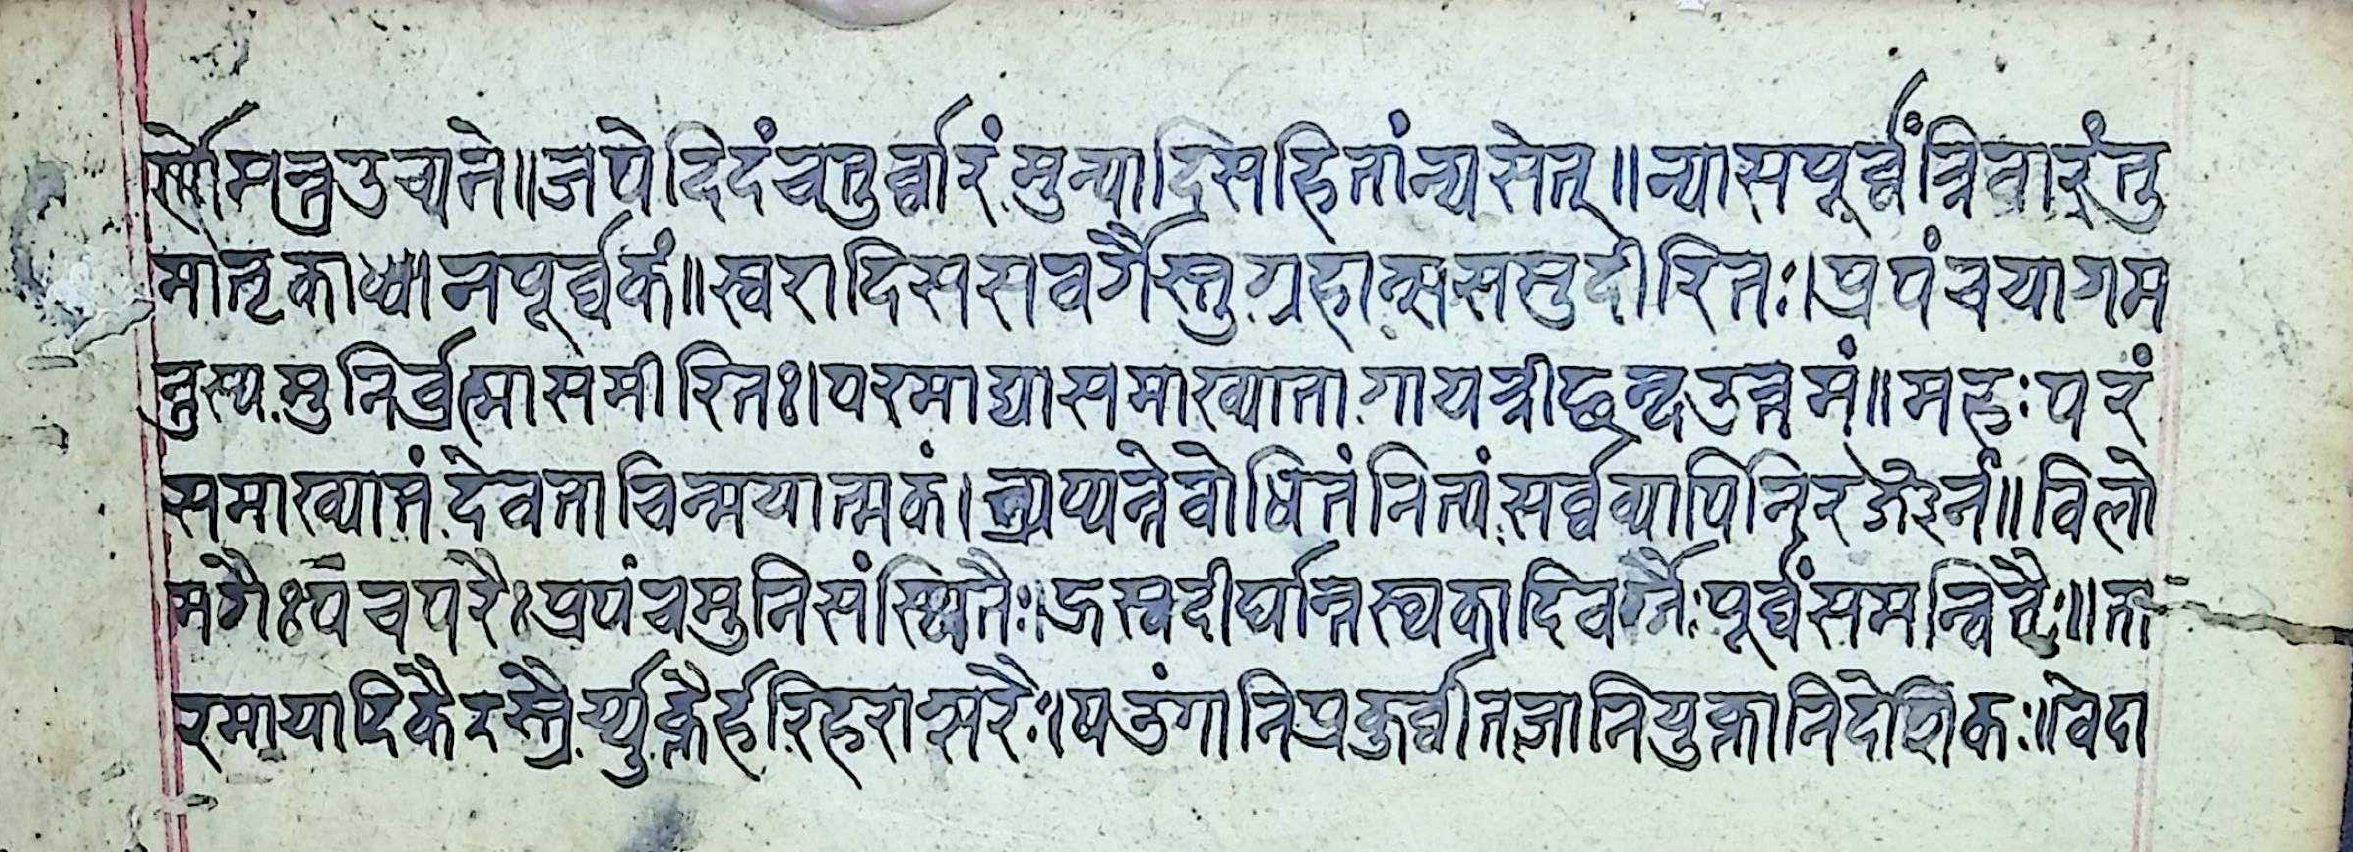 र्णोमन्त्रउच्यते॥जपेदिदंचतुर्व्वारंमुन्यादिसहितांन्यसेत्॥न्यासपूर्व्वंत्रिवारंतु
मातृकाध्यानपूर्व्वकं॥स्वरादिससवर्गैस्तुग्रहान्ससमुदीरितः।प्रपंचयागम
न्तुस्यमुनिर्ब्रह्मासमीरितः।परमाद्यासमाख्यातागायत्रीछन्दउत्तमं॥महःपरं
समाख्यातंदेवताचिन्मयात्मकं।त्र्यप्यन्तेबोधितंनित्यंसर्व्वव्यापिनिरञ्जनं॥विलो
मगैःपंचपरैःप्रपंचमुनिसंस्थितैः।ह्रस्वदीर्घान्तस्थकादिवर्गैःपूर्व्वंसमन्वितैः॥ता
रमायादिकैरस्त्रैर्य्युक्तैर्हरिहराक्षरैः।षडंगानिप्रकुर्व्वीतजानियुक्तानिदेशिकः॥वेदा